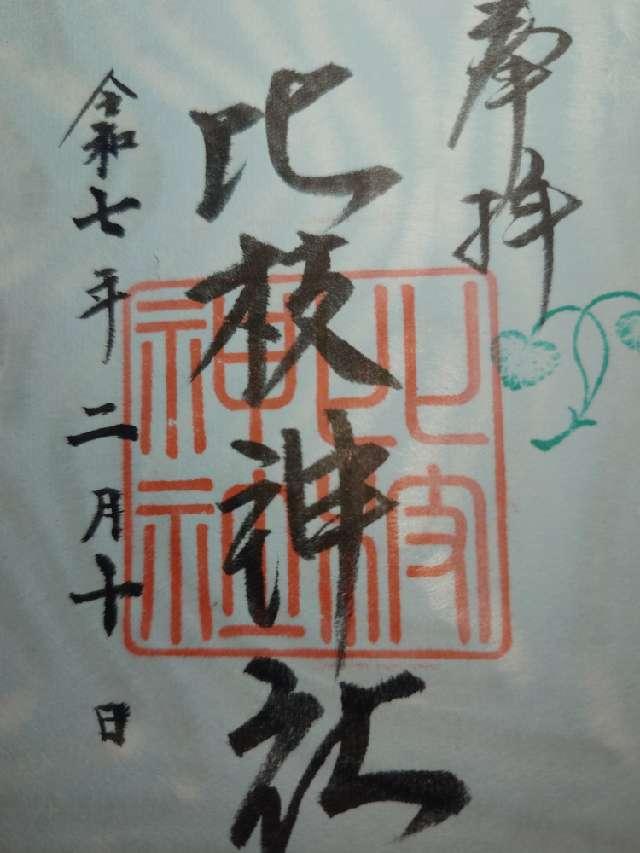 奉拝
比枝神社
比枝神社
令和七年二月十日